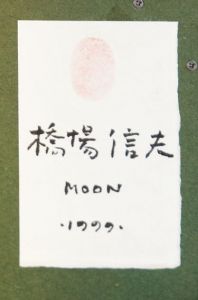 橋場信夫
MOON
·1999·